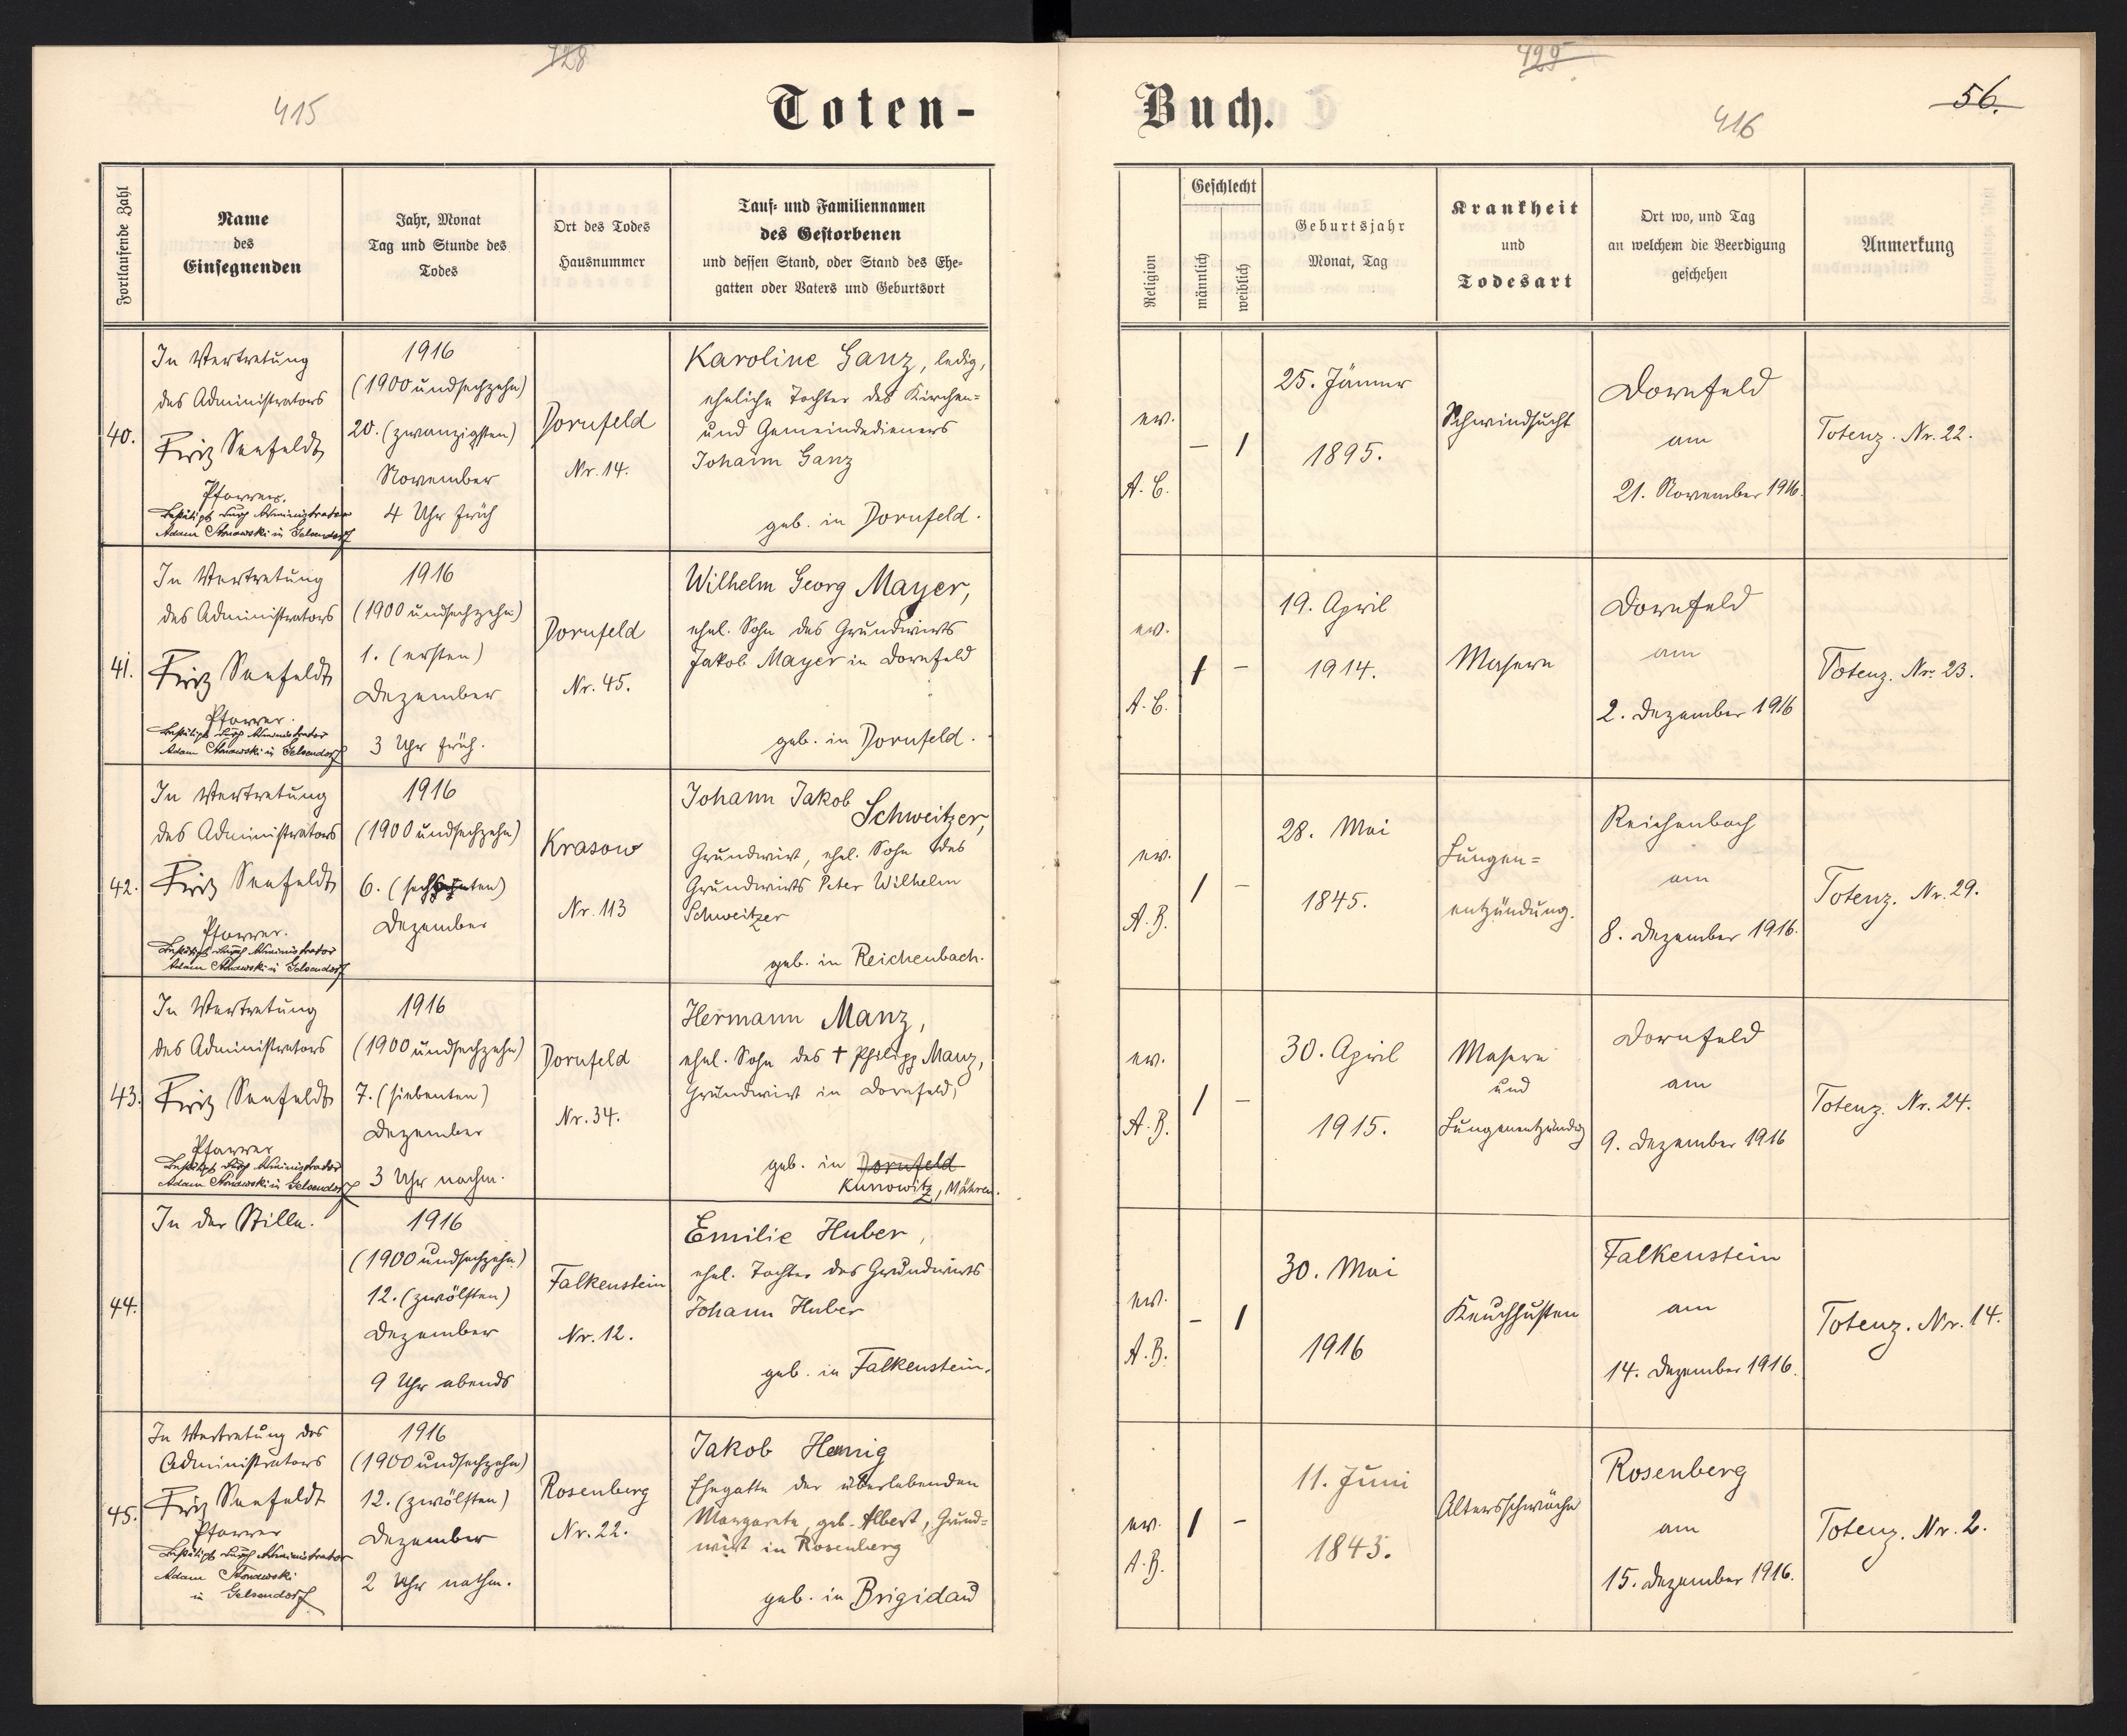 428
415
Toten-
Fortlaufende Zahl
Name
des
Einsegnenden
Jahr, Monat
Tag und Stunde des
Todes
Ort des Todes
Hausnummer
Tauf- und Familiennamen
des Gestorbenen
und dessen Stand, oder Stand des Ehe-
gatten oder Vaters und Geburtsort
40.
In Vertretung
des Administrators
Fritz Seefeldt
Pfarrer.
Bestätigt durch Administrator
Adam in Gelsendorf
1916
(1900 undsechzehn)
20. (zwanzigsten)
November
4 Uhr früh
Dornfeld
Nr. 14.
Karoline Ganz, ledig,
eheliche Tochter des Kirchen-
und Gemeindedieners
Johann Ganz
geb. in Dornfeld.
41.
In Vertretung
des Administrators
Fritz Seefeldt
Pfarrer.
Bestätigt durch Administrator
Adam in Gelsendorf
1916
(1900 undsechzehn)
1. (ersten)
Dezember
3 Uhr früh.
Dornfeld
Nr. 45.
Wilhelm Georg Mayer,
ehel. Sohn des Grundwirts
Jakob Mayer in Dornfeld
geb. in Dornfeld.
42.
In Vertretung
des Administrators
Fritz Seefeldt
Pfarrer.
Bestätigt durch Administrator
Adam in Gelsendorf
1916
(1900 undsechzehn)
6. (sechsten)
Dezember
Krasow
Nr. 113
Johann Jakob
Schweitzer,
Grundwirt, ehel. Sohn des
Grundwirts Peter Wilhelm
Schweitzer
geb. in Reichenbach.
43.
In Vertretung
des Administrators
Fritz Seefeldt
Pfarrer
Bestätigt durch Administrator
Adam in Gelsendorf
1916
(1900 undsechzehn)
7. (siebenten)
Dezember
3 Uhr nachm.
Dornfeld
Nr. 34.
Hermann Manz,
ehel. Sohn des † Philipp Manz,
Grundwirt in Dornfeld,
geb. in Dornfeld
Kunowitz, Mähren.
44.
In der Stille.
1916
(1900 undsechzehn)
12. (zwölften)
Dezember
9 Uhr abends
Falkenstein
Nr. 12.
Emilie Huber,
ehel. Tochter des Grundwirts
Johann Huber
geb. in Falkenstein.
45.
In Vertretung des
Administrators
Fritz Seefeldt
Pfarrer
Bestätigt durch Administrator
Adam
in Gelsendorf
1916
(1900 undsechzehn)
12. (zwölften)
Dezember
2 Uhr nachm.
Rosenberg
Nr. 22.
Jakob Hennig
Ehegatte der überlebenden
Margarete, geb. Albert, Grund-
wirt in Rosenberg
geb. in Brigidau
429
56.
416
Buch.
Religion
Geschlecht
männlich
weiblich
Geburtsjahr
Monat, Tag
Krankheit
und
Todesart
Ort wo, und Tag
an welchem die Beerdigung
geschehen
Anmerkung
ev.
A. C.
– 1
25. Jänner
1895.
Schwindsucht
Dornfeld
am
21. November 1916.
Totenz. Nr. 22.
ev.
A. C.
1 –
19. April
1914.
Masern
Dornfeld
am
2. Dezember 1916
Totenz. Nr. 23.
ev.
A. B.
1 –
28. Mai
1845.
Lungen=
entzündung.
Reichenbach
am
8. Dezember 1916.
Totenz. Nr. 29.
ev.
A. B.
1 –
30. April
1915.
Masern
und
Lungenentzündg
Dornfeld
am
9. Dezember 1916
Totenz. Nr. 24.
ev.
A. B.
– 1
30. Mai
1916
Keuchhusten
Falkenstein
am
14. Dezember 1916.
Totenz. Nr. 14.
ev.
A. B.
1 –
11. Juni
1843.
Altersschwäche
Rosenberg
am
15. Dezember 1916.
Totenz. Nr. 2.